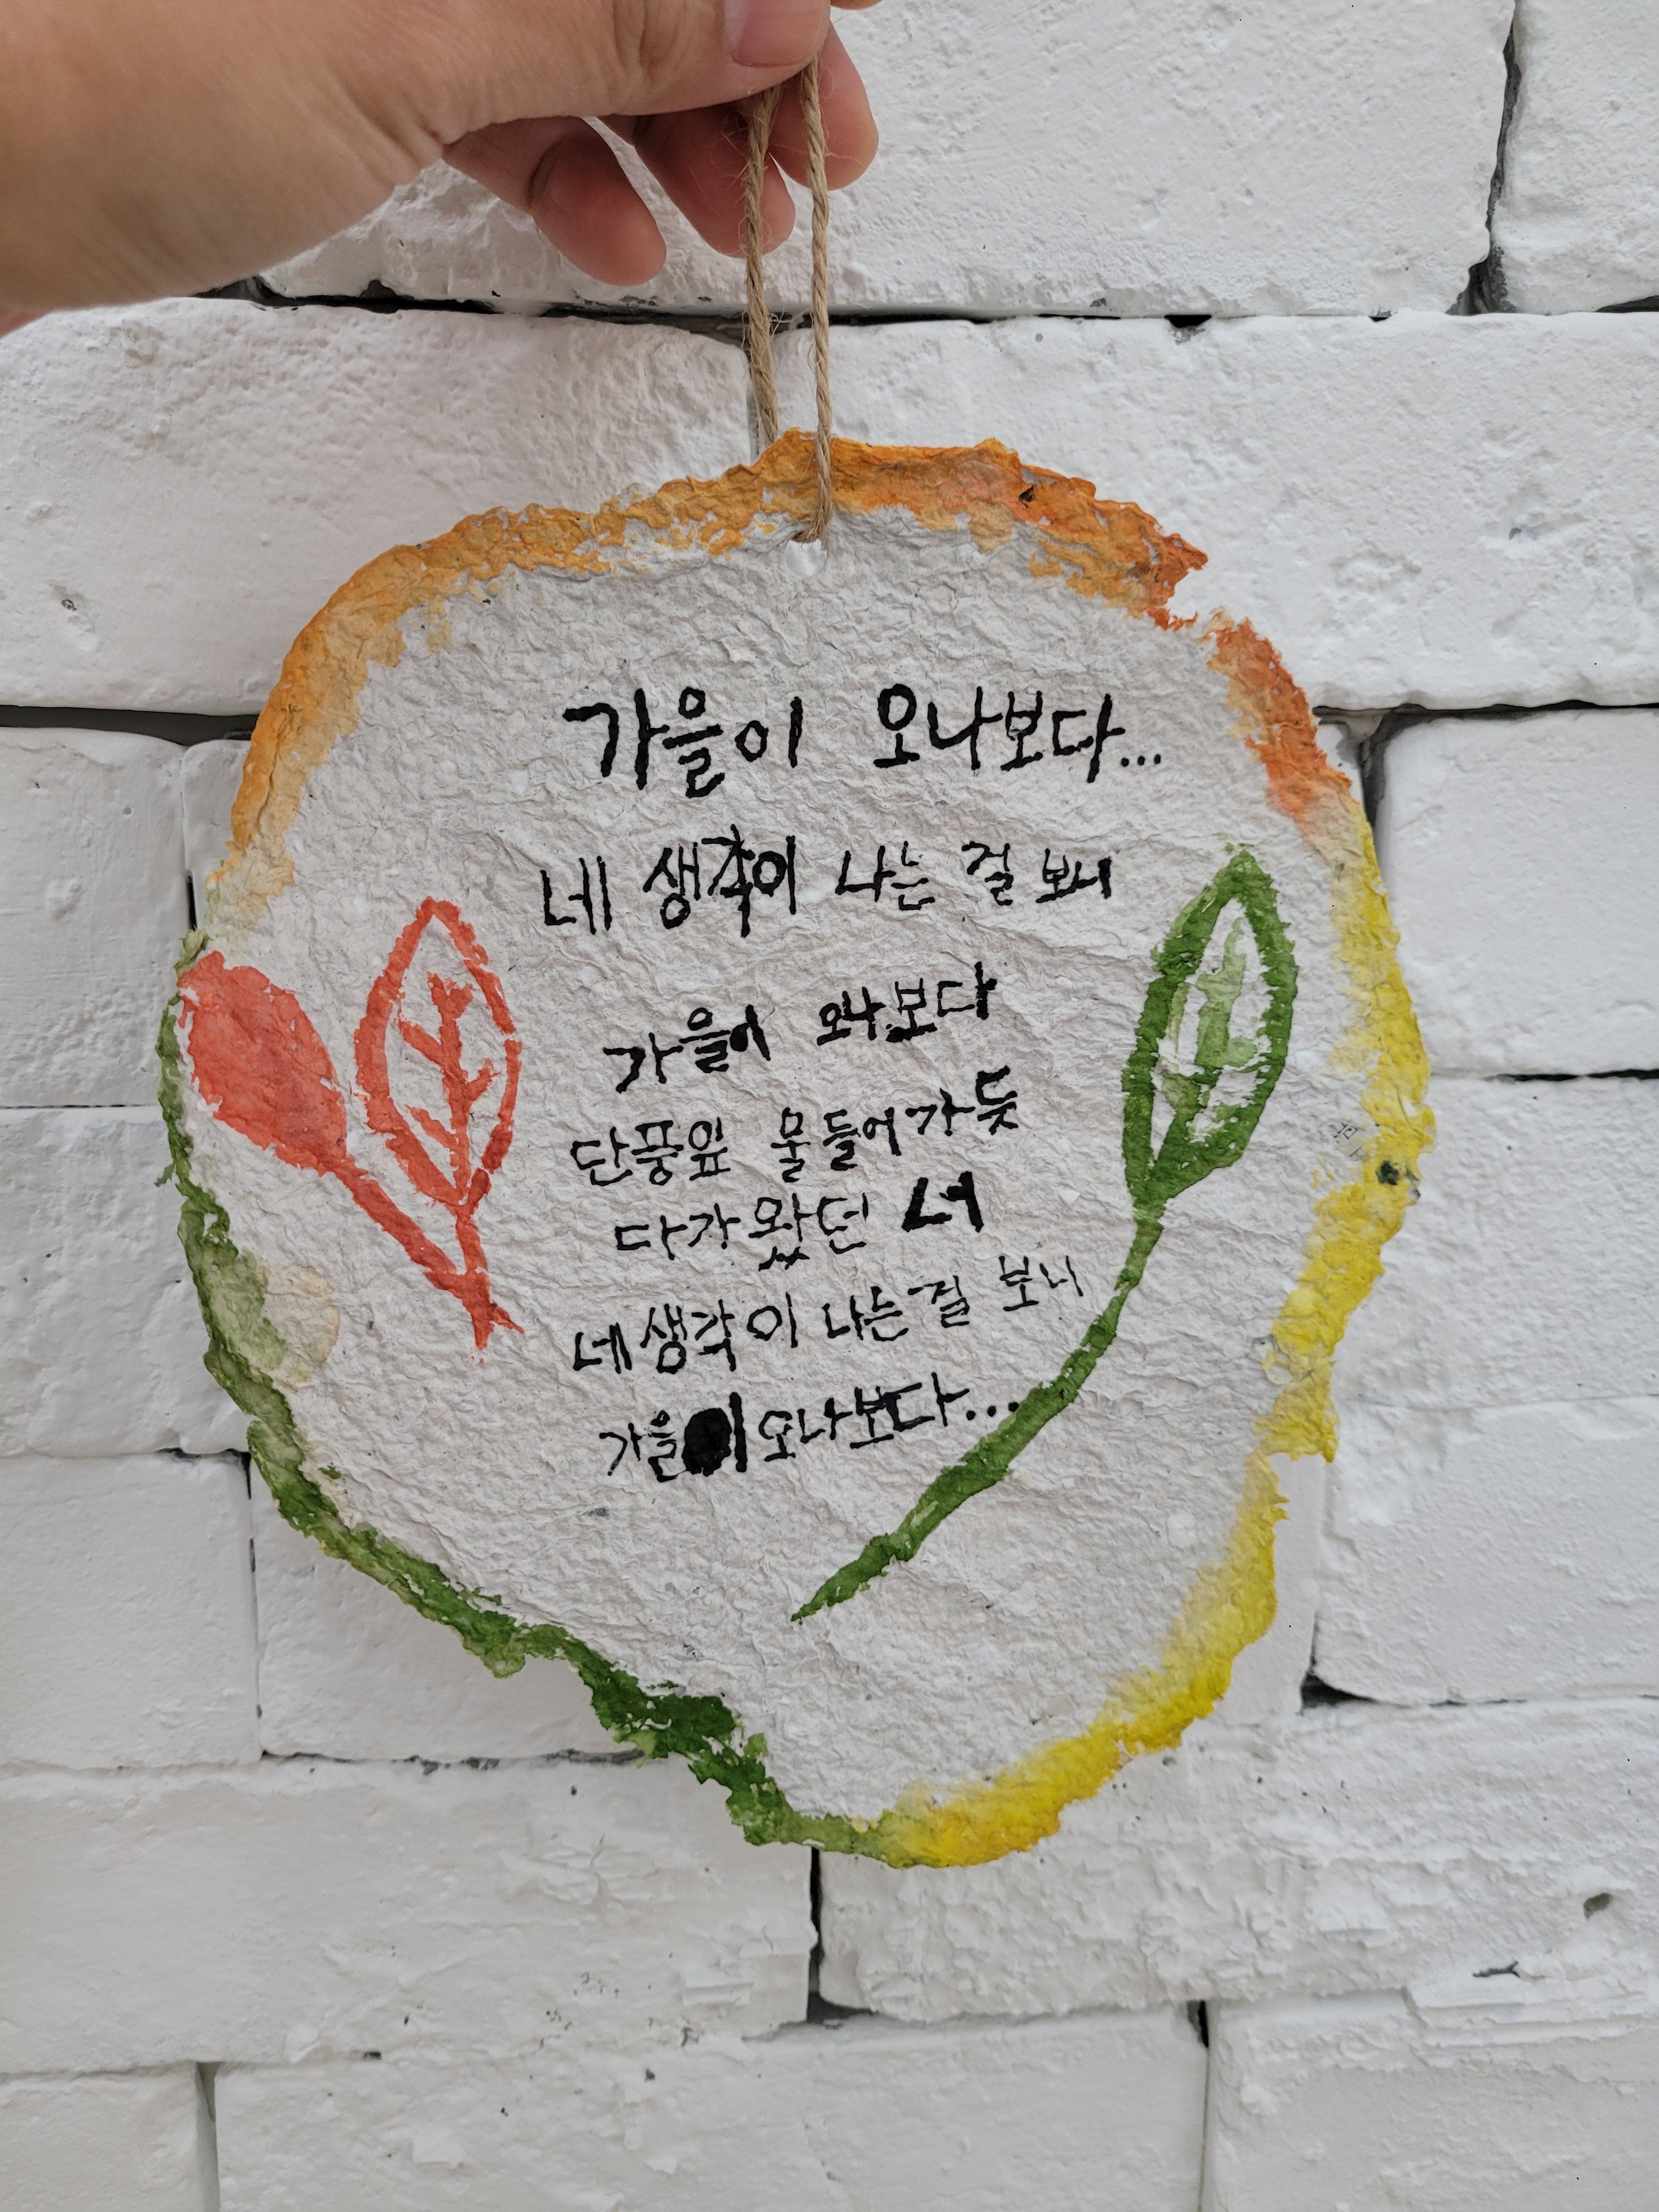 가을이 오나보다...
네 생각이 나는 걸 보니
가을이 오나보다
단풍잎 물들어가듯
다가왔던 너
네 생각이 나는 걸 보니
가을이 오나보다...